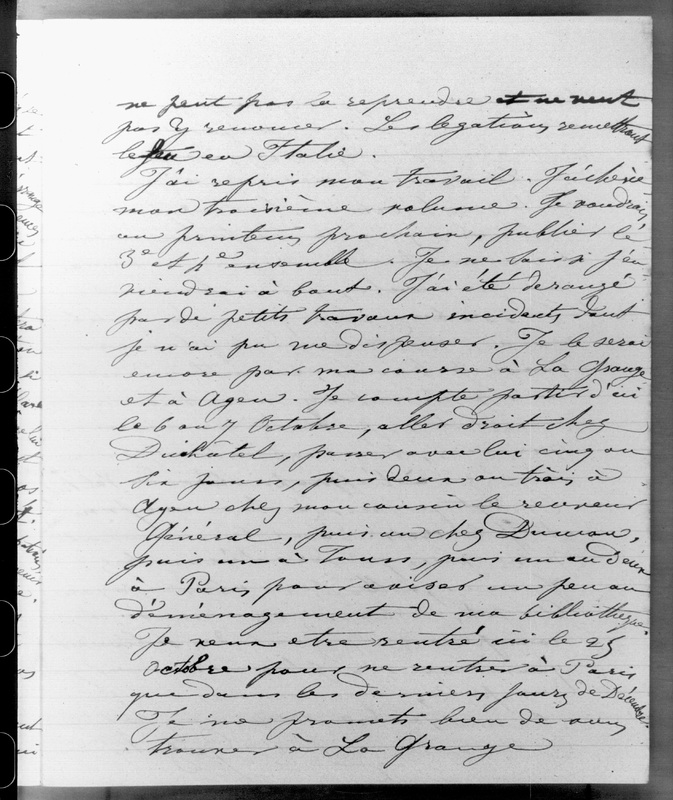 ne peut pas la reprendre et ne veut
pas y renoncer. Les légations remettront
le feu en Italie.
J'ai repris mon travail. J'achève
mon troisième volume. Je voudrais
au printems prochain, publier le
3e et 4e ensemble. Je ne sais si j'en
viendrai à bout. J'ai été derangé
par de petits travaux incidents dont
je n'ai pu me dispenser. Je le serai
encore par ma course à La Grange
et à Agen. Je compte partir d'ici
le 6 ou 7 Octobre, aller droit chez
Duchâtel, passer avec lui cinq ou
six jours, puis deux ou trois à
Agen chez mon cousin le receveur
Général, puis un chez Dumon,
puis un à Tours, puis un ou deux
à Paris pour aviser un peu au
déménagement de ma bibliothèque.
Je veux etre rentré ici le 25
octobre pour ne rentrer à Paris
que dans les derniers jours de Décembre.
Je me promets bien de vous
trouver à La Grange